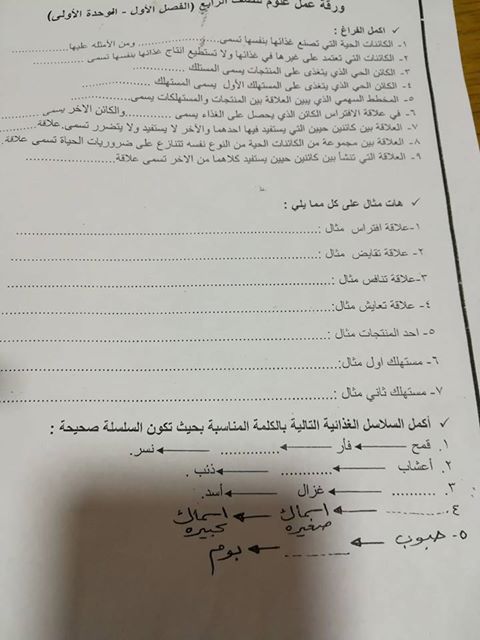 ورقة عمل علوم للصف الرابع (الفصل الأول - الوحدة الأولى)
✓ اكمل الفراغ :
١- الكائنات الحية التي تصنع غذائها بنفسها تسمى....................... ومن الأمثله عليها...............
٢- الكائنات التي تعتمد على غيرها في غذائها ولا تستطيع انتاج غذائها بنفسها تسمى ...............
٣- الكائن الحي الذي يتغذى على المنتجات يسمى المستلك...............
٤- الكائن الحي الذي يتغذى على المستهلك الأول يسمى المستهلك ...............
٥- المخطط السهمي الذي يبين العلاقة بين المنتجات والمستهلكات يسمى...............
٦- في علاقة الافتراس الكائن الذي يحصل على الغذاء يسمى ...............والكائن الاخر يسمى...............
٧- العلاقة بين كائنين حيين التي يستفيد فيها احدهما والأخر لا يستفيد ولا يتضرر تسمى علاقة...............
٨- العلاقة بين مجموعة من الكائنات الحية من النوع نفسه تتنازع على ضروريات الحياة تسمى علاقة...............
٩- العلاقة التي تنشأ بين كائنين حيين يستفيد كلاهما من الاخر تسمى علاقة...............
✓ هات مثال على كل مما يلي :
١-علاقة افتراس مثال :...............
٢- علاقة تقايض مثال :...............
٣-علاقة تنافس مثال :...............
٤- علاقة تعايش مثال :...............
٥- احد المنتجات مثال :...............
٦- مستهلك اول مثال:...............
٧- مستهلك ثاني مثال :...............
✓ أكمل السلاسل الغذائية التالية بالكلمة المناسبة بحيث تكون السلسلة صحيحة :
١. قمح ← فأر ← ............... ← نسر.
٢. أعشاب ← ............ ← ذنب .
٣. .......... ← غزال ← أسد.
٤. .......... ← اسماك صغيره ← اسماك كبيره
٥- حبوب ← .......... ← بوم